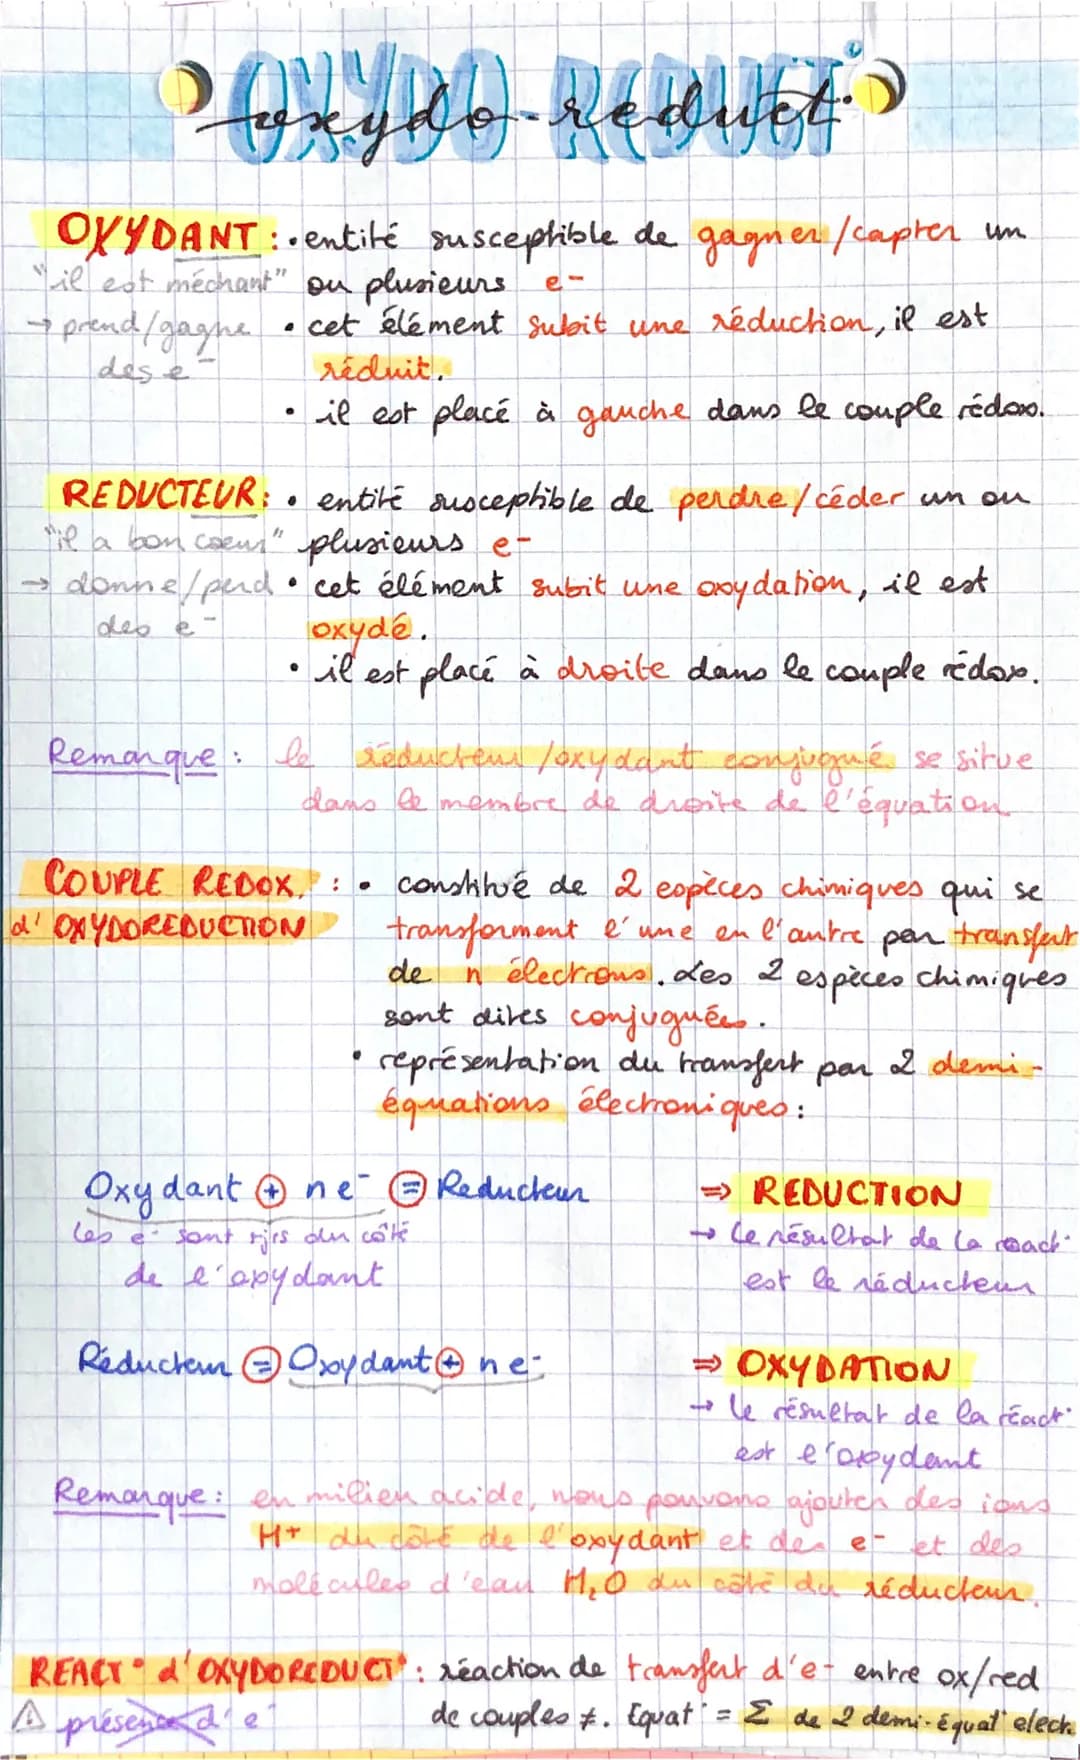 OXYDO-REDUCT°
oxydo-reduct°
OXYDANT : • entité susceptible de gagner/capter un
"il est méchant" ou plusieurs e-
→ prend/gagne • cet élément subit une réduction, il est
des e- réduit.
• il est placé à gauche dans le couple rédox.
REDUCTEUR : • entité susceptible de perdre/céder un ou
"il a bon coeur" plusieurs e-
→ donne/perd • cet élément subit une oxydation, il est
des e- oxydé.
• il est placé à droite dans le couple rédox.
Remarque : le réducteur/oxydant conjugué se situe
dans le membre de droite de l'équation
COUPLE REDOX, : • constitué de 2 espèces chimiques qui se
d'OXYDOREDUCTION transforment l'une en l'autre par transfert
de n électrons. Les 2 espèces chimiques
sont dites conjuguées.
• représentation du transfert par 2 demi-
équations électroniques :
Oxydant + ne- = Reducteur ⇒ REDUCTION
les e- sont tjrs du côté → le résultat de la react°
de l'oxydant est le réducteur
Réducteur = Oxydant + ne- ⇒ OXYDATION
→ le résultat de la réact°
est l'oxydant
Remarque : en milieu acide, nous pouvons ajouter des ions
H+ du côté de l'oxydant et des e- et des
molécules d'eau H₂O du côté du réducteur.
REACT° d'OXYDOREDUCT° : réaction de transfert d'e- entre ox/red
⚠ présence d'e- de couples ≠. Equat° = Σ de 2 demi-équat° elect.